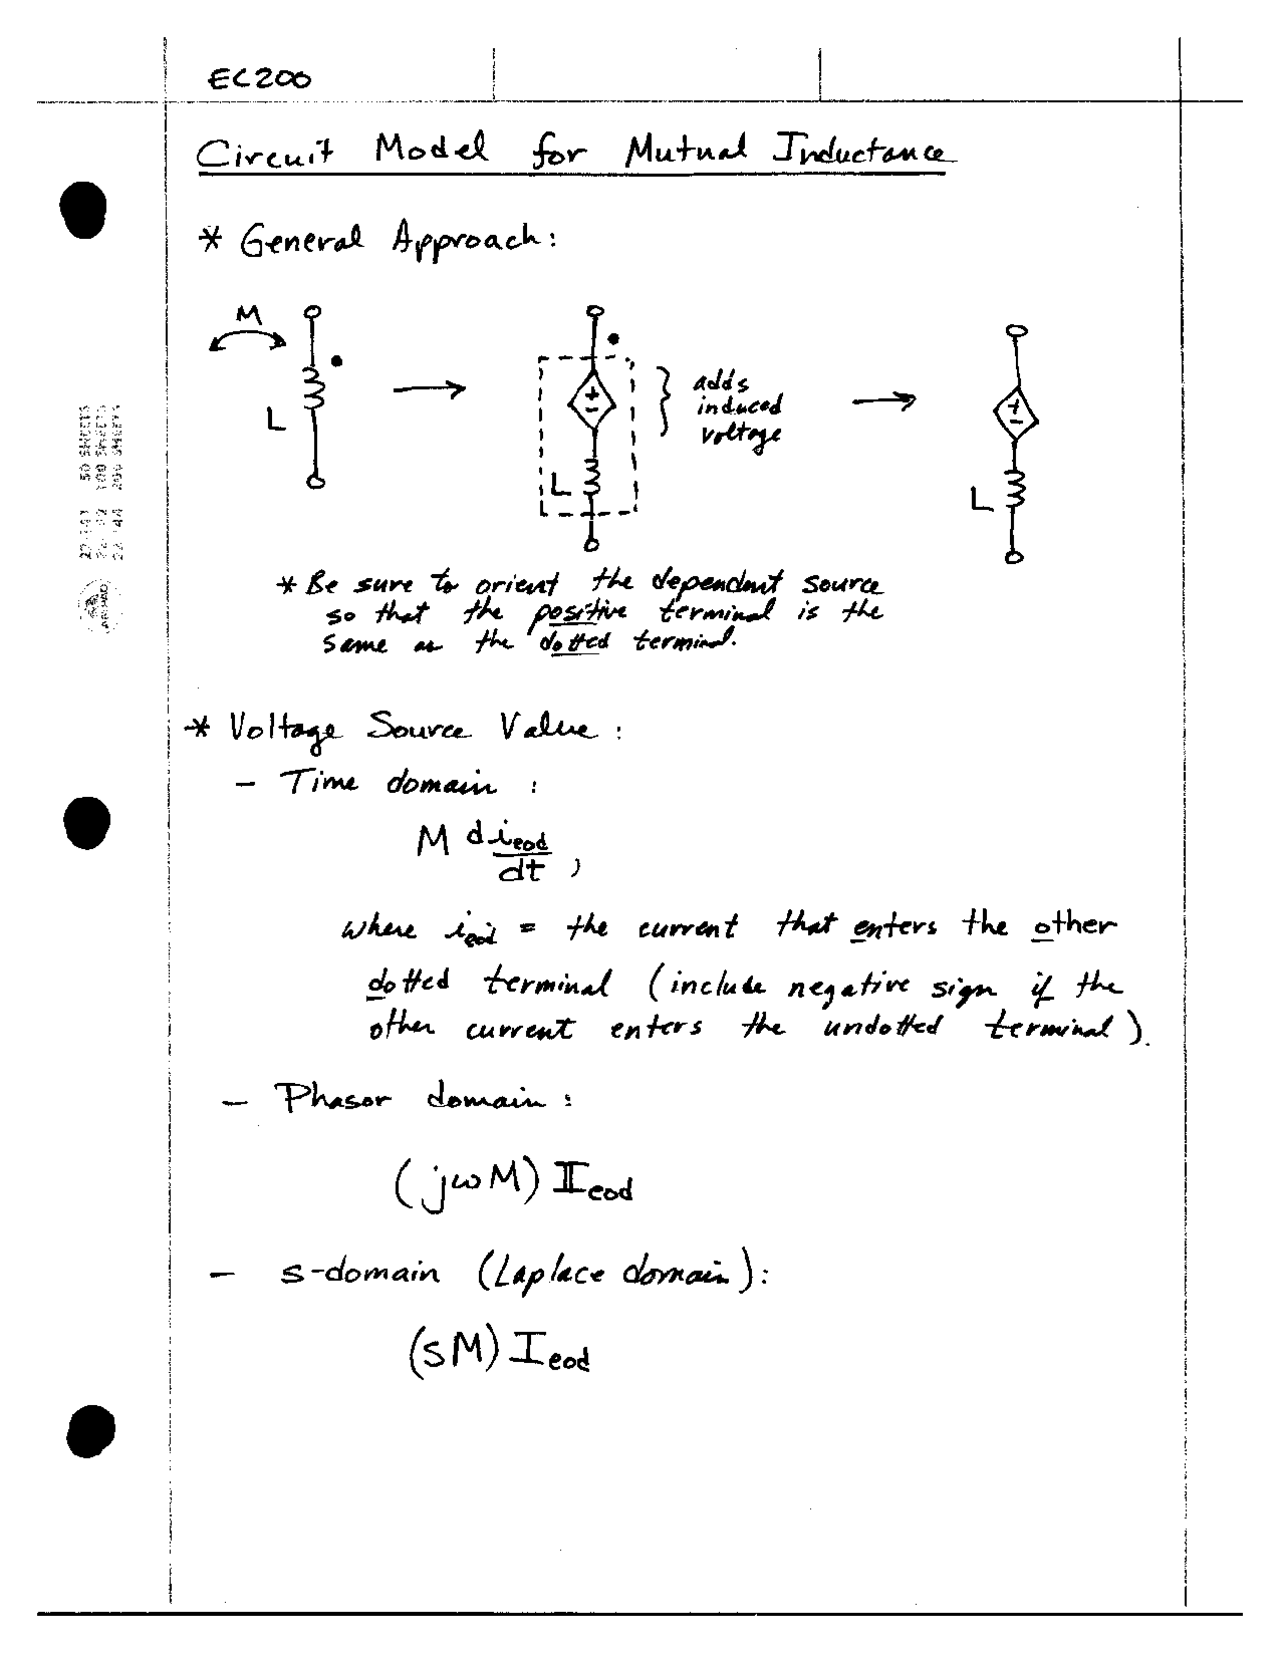 EC200
Circuit Model for Mutual Inductance
* General Approach:
M
L
+
-
L
} adds
induced
voltage
+
-
L
* Be sure to orient the dependent source
so that the positive terminal is the
same as the dotted terminal.
* Voltage Source Value:
- Time domain:
M di_eod/dt,
where i_eod = the current that enters the other
dotted terminal (include negative sign if the
other current enters the undotted terminal).
- Phasor domain:
(jωM) I_eod
- s-domain (Laplace domain):
(sM) I_eod
50 SHEETS
100 SHEETS
200 SHEETS
22-144